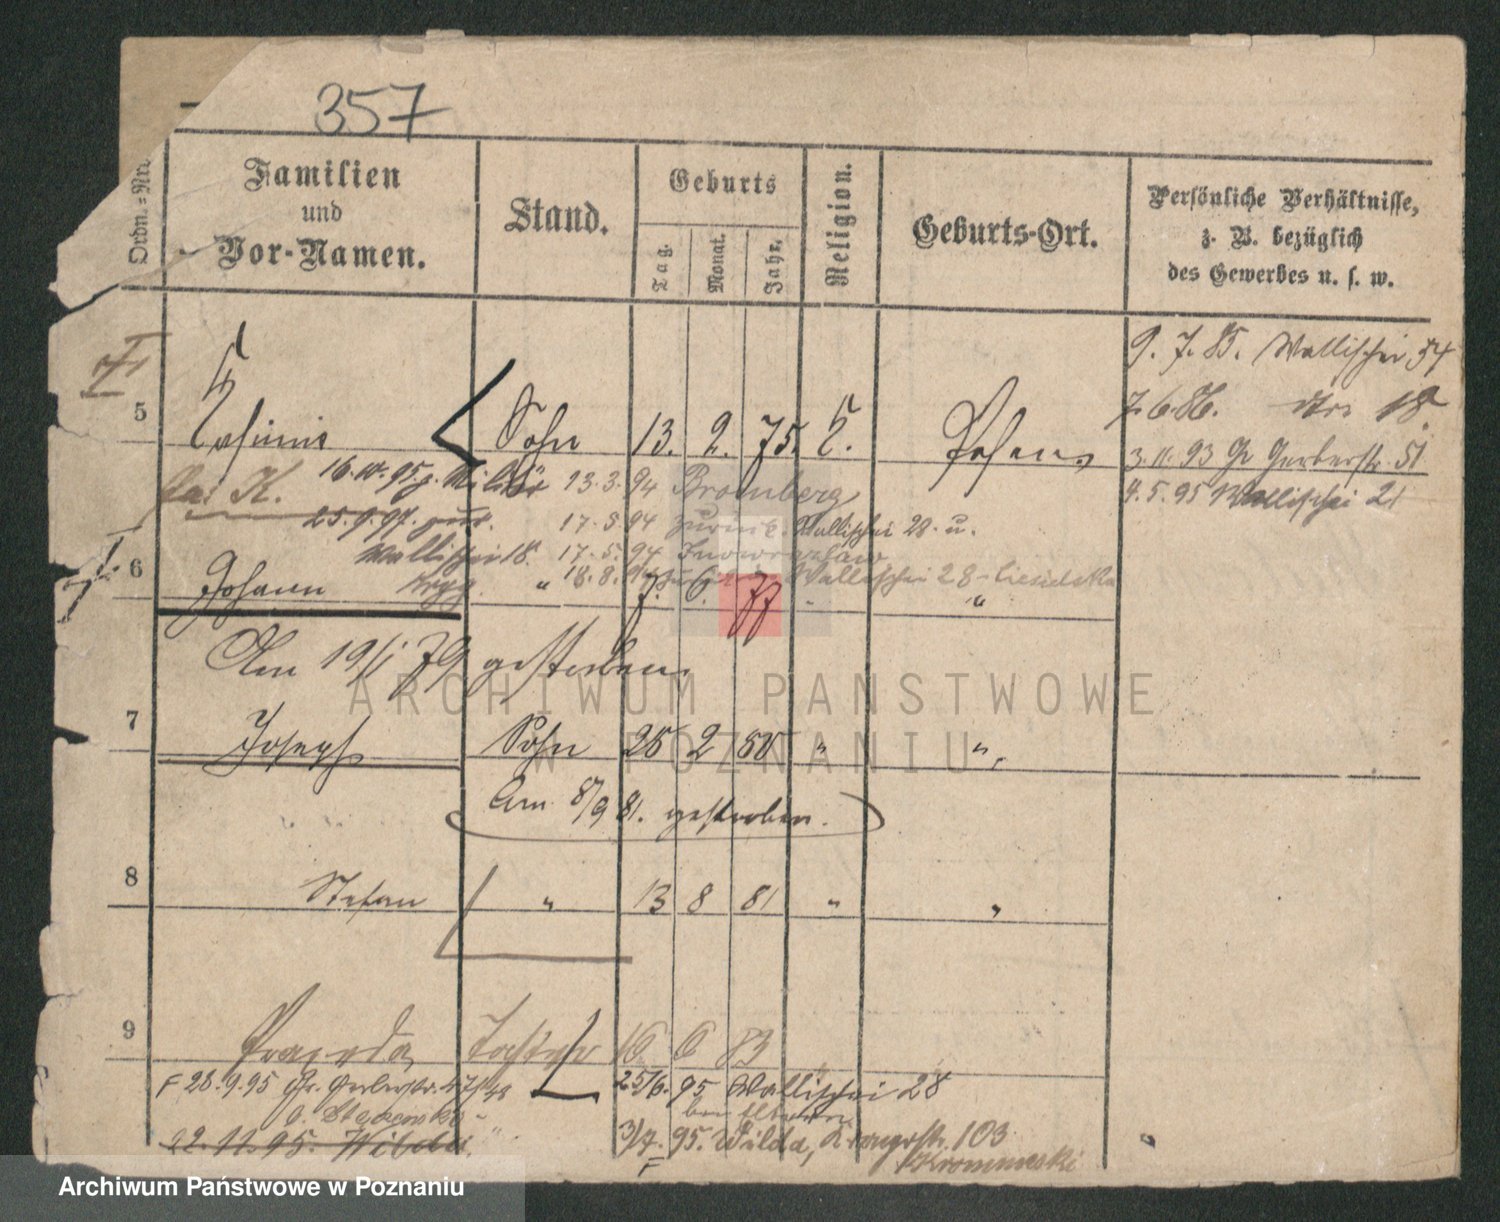 357
Ordn.-Nr.
Familien
und
Vor-Namen.
Stand.
Geburts
Tag.
Monat.
Jahr.
Religion.
Geburts-Ort.
Persönliche Verhältnisse,
z. B. bezüglich
des Gewerbes u. s. w.
9. 7. 85. Wallischei 54
7. 6. 86. 18.
5 Casimir Sohn 13. 2. 75. k. Posen
3. 11. 93 Gr Gerberstr. 51
4. 5. 95 Wallischei 21
K. 16. 95. z. Militär 13. 3. 94 Bromberg
25. 9. 97. zur. 17. 5. 94 zurück Wallischei 28. u.
Wallischei 18. 17. 5. 94 Inowrazlaw
18. 8. Wallischei 28
6 Johann " 7. 6. 77 "
Am 19/1 79 gestorben
7 Joseph Sohn 25 2 80 " "
Am 8/9 81. gestorben.
8 Stefan " 13 8 81 " "
9 Praxeda Tochter 16 6 83
F 28. 9. 95 Gr. Gerberstr. 47/48
25/6. 95 Wallischei 28
bei Eltern
22. 11. 95. Wilda
3/7. 95. Wilda, Kronprstr. 103
F
ARCHIWUM PAŃSTWOWE
W POZNANIU
Archiwum Państwowe w Poznaniu